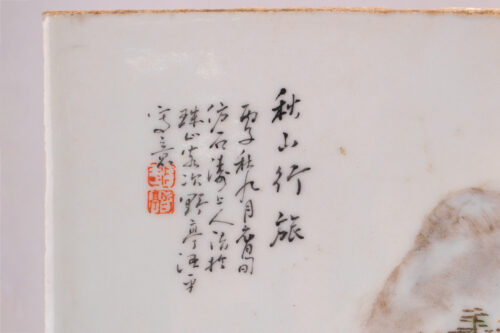 秋山行旅
丙子秋九月旬
仿石濤上人法於
珠山客次野亭汪平
寫意